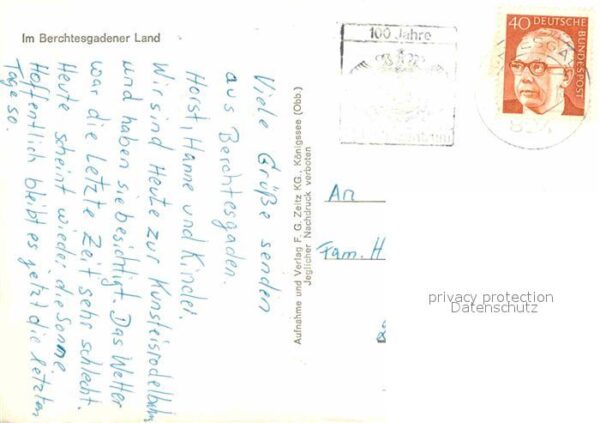 Im Berchtesgadener Land
Viele Grüße senden
aus Berchtesgaden.
Horst, Hanne und Kinder.
Wir sind Heute zur Kunsteisrodelbahn
und haben sie besichtigt. Das Wetter
war die Letzte Zeit sehr schlecht.
Heute scheint wieder die Sonne
Hoffentlich bleibt es jetzt die letzten
Tage so.
Aufnahme und Verlag F. G. Zeitz KG., Königssee (Obb.)
Jeglicher Nachdruck verboten
100 Jahre
40 DEUTSCHE
BUNDESPOST
An
Fam. H
privacy protection
Datenschutz